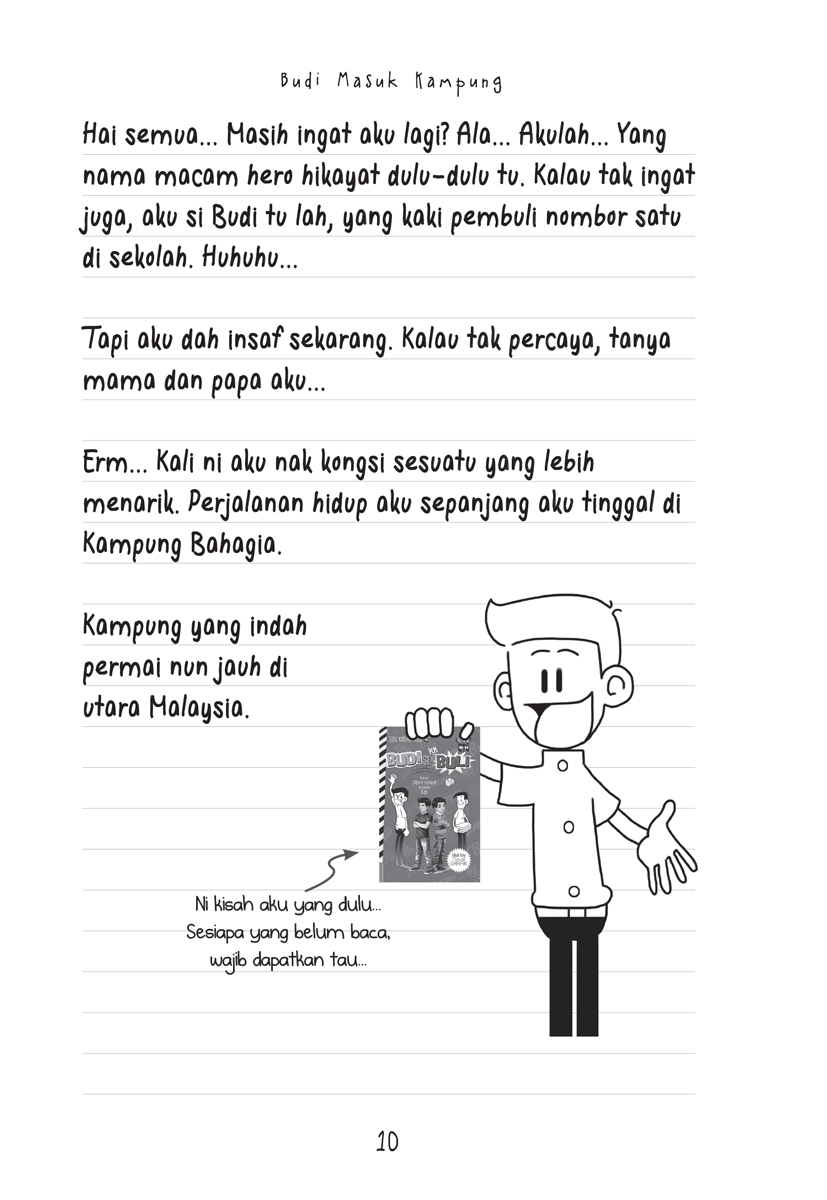 Budi Masuk Kampung
Hai semua... Masih ingat aku lagi? Ala... Akulah... Yang
nama macam hero hikayat dulu-dulu tu. Kalau tak ingat
juga, aku si Budi tu lah, yang kaki pembuli nombor satu
di sekolah. Huhuhu...
Tapi aku dah insaf sekarang. Kalau tak percaya, tanya
mama dan papa aku...
Erm... Kali ni aku nak kongsi sesuatu yang lebih
menarik. Perjalanan hidup aku sepanjang aku tinggal di
Kampung Bahagia.
Kampung yang indah
permai nun jauh di
utara Malaysia.
BUDI
BULI
Ni kisah aku yang dulu...
Sesiapa yang belum baca,
wajib dapatkan tau...
10